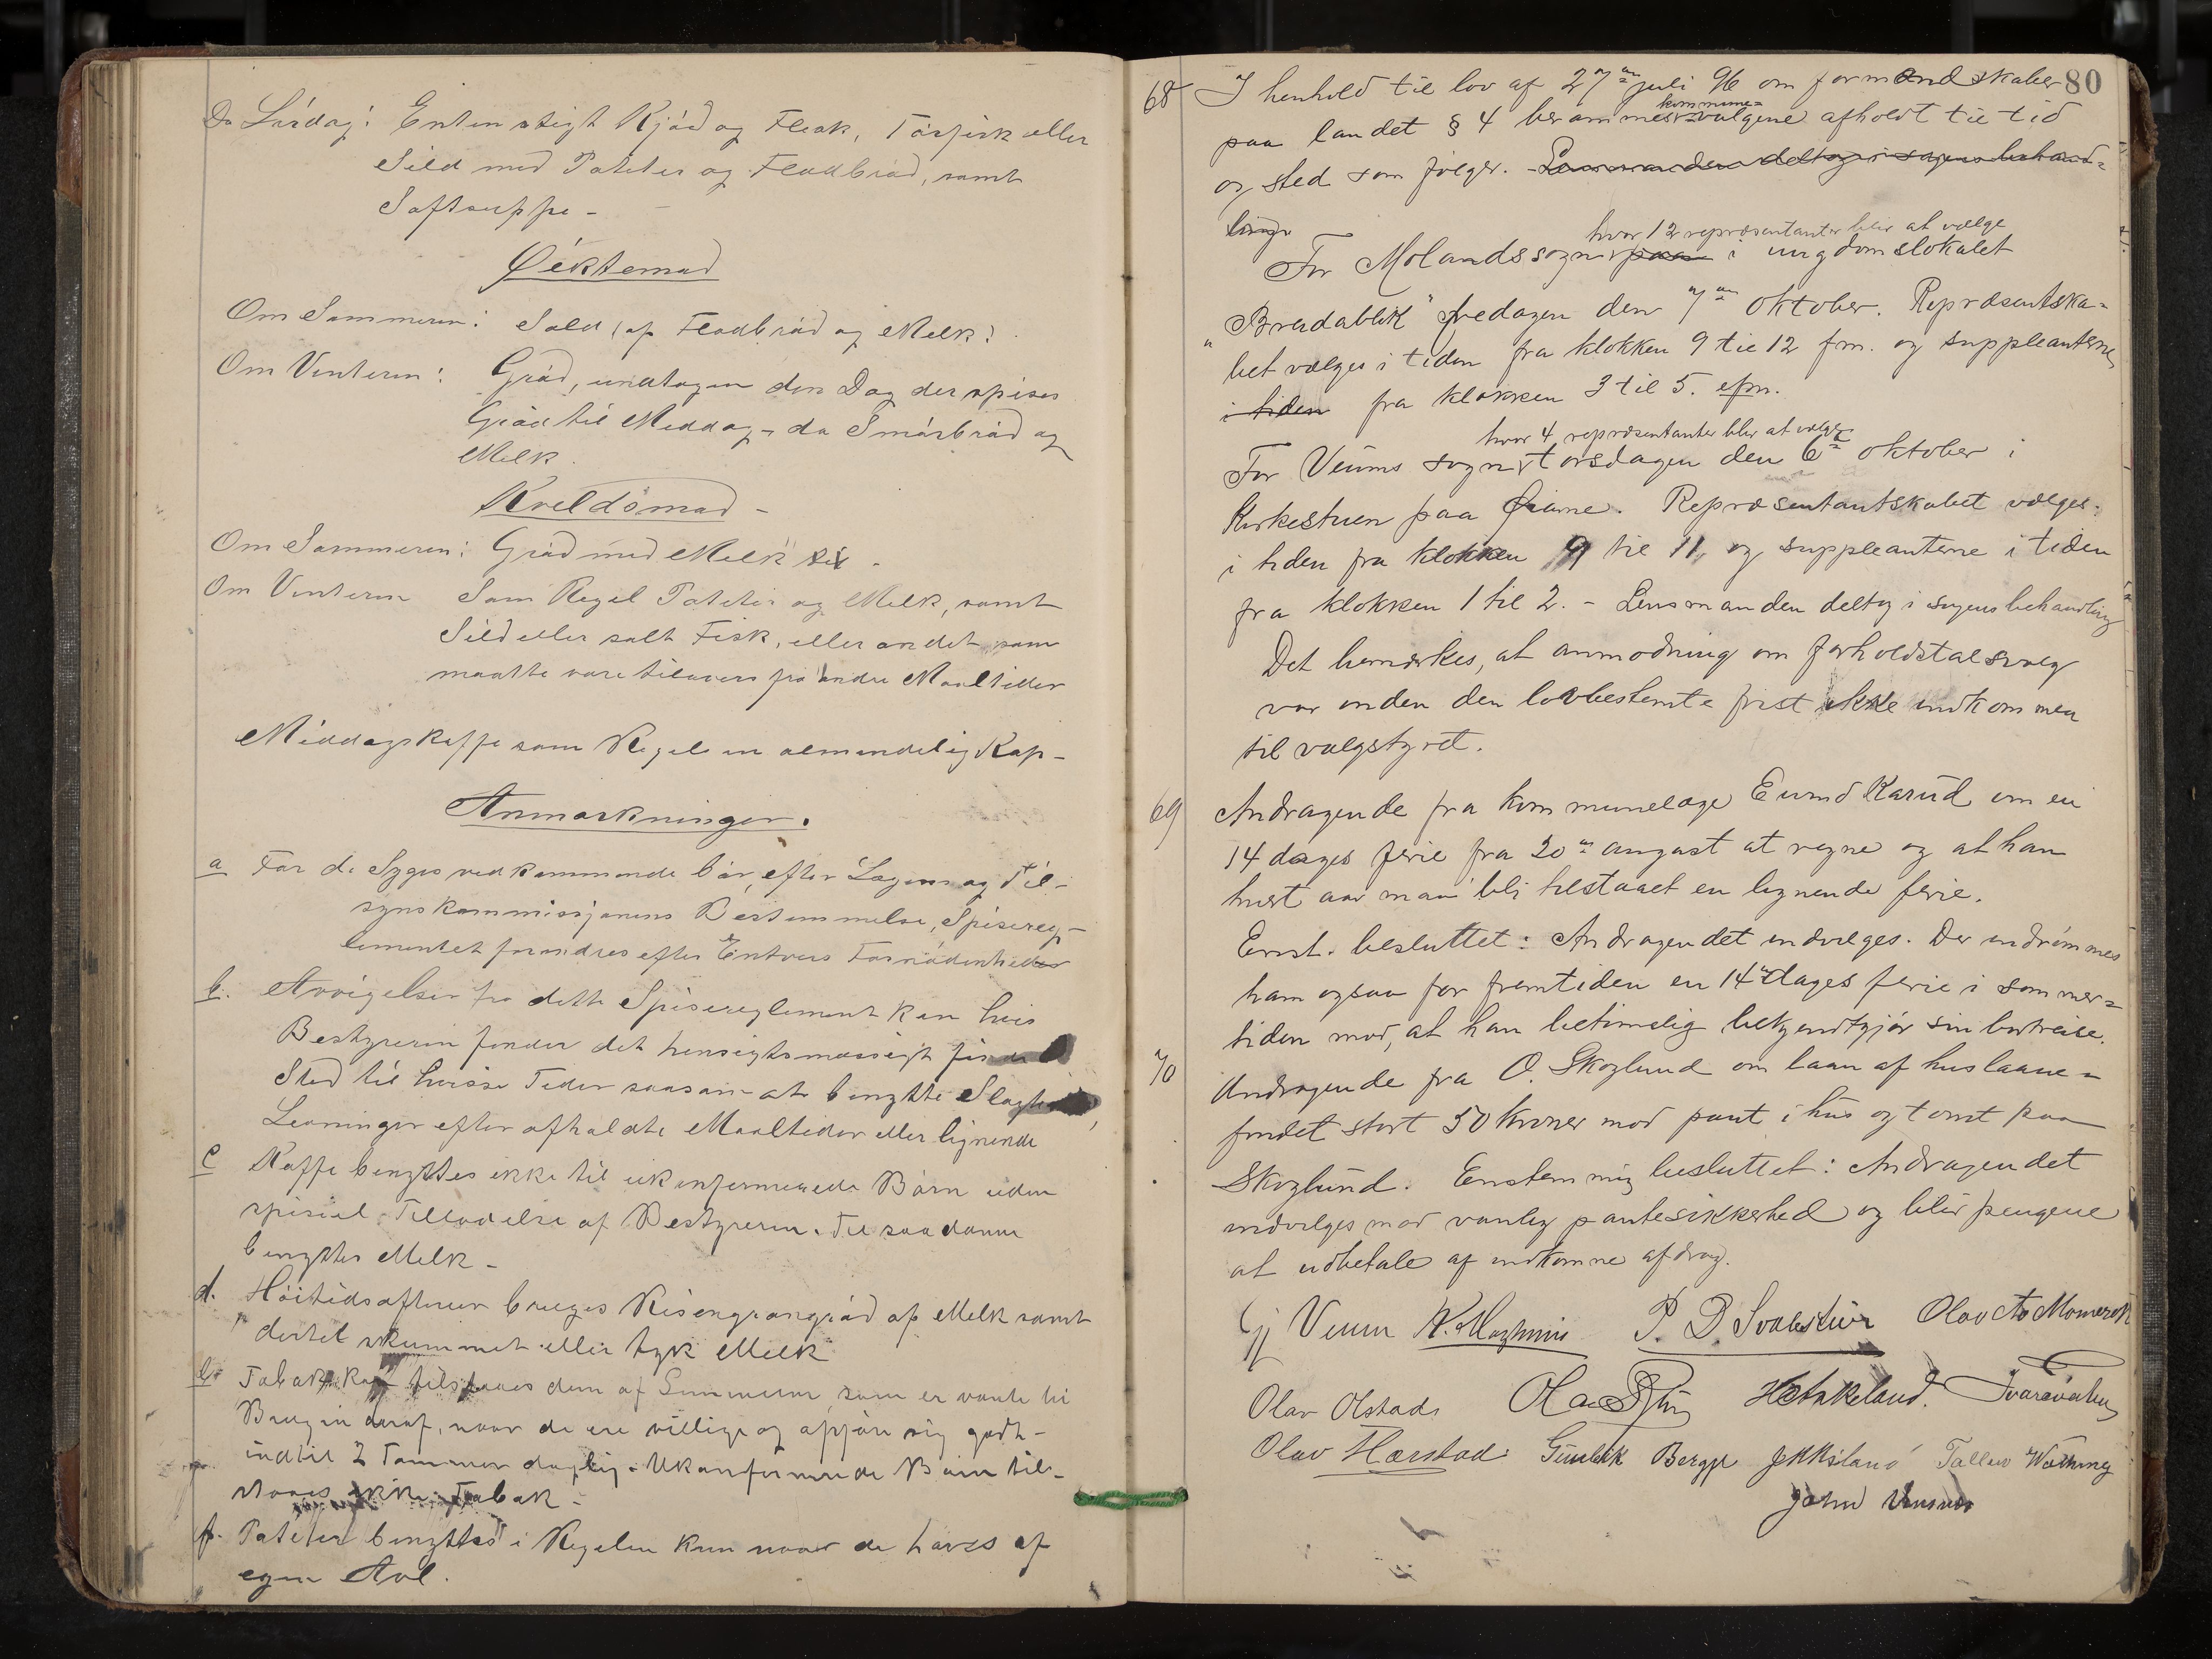 Do Lördag: Enten stegt Kjöd og Flesk, Törfisk eller
Sild med Poteter og Fladbröd, samt
Saftsuppe -
Öiktemad
Om Sommeren: Sold (af Fladbröd og Melk)
Om Vinteren: Gröd, undtagen den Dag der spises
Gröd til Middag - da Smörbröd og
Melk.
Kveldsmad -
Om Sommeren: Gröd med Melk til -
Om Vinteren Som Regel Poteter og Melk, samt
Sild eller salt Fisk, eller andet som
maatte være tilovers fra andre Maaltider
Middagskaffe som Regel en almindelig Kop -
Anmærkninger.
a For de Syges vedkommende bör, efter Lægens og Til-
synskommissjonens Bestemmelse, Spisereg-
lementet forandres efter Enhvers Fornödenheder
b. Avvigelser fra dette Spisereglement kan hvis
Bestyreren finder det hensigtsmæssigt finde
Sted til hvisse Tider saasom at benytte Slagt
Levninger efter afholdte Maaltider eller lignende
c Kaffe benyttes ikke til ukonfirmerede Börn uden
spesiel Tilladelse af Bestyreren. Til saadanne
benyttes Melk -
d. Höitidsaftener bruges Risengrynsgröd af Melk samt
dertil skummet eller tyk Melk
e. Tobak kan tilstaaes dem af Lemmerne, som er vante til
Brugen deraf, naar de ere villige og opföre sig godt -
indtil 2 Tommer daglig. Ukonfirmerede Börn til-
staaes ikke Tobak -
f. Poteter benyttes i Regelen kun naar de haves af
egen Avl.
80
68 I henhold til lov af 27de juli 96 om formandskaber
paa landet § 4 berammes kommune-valgene afholdt til tid
og sted som fölger. Lensmanden deltog i sagens behand-
ling
hvor 12 repræsentanter blir at vælge
For Molands sogn paa i ungdomslokalet
"Breidablik" fredagen den 7de oktober. Repræsentska-
bet vælges i tiden fra klokken 9 til 12 fm. og suppleanterne
i tiden fra klokken 3 til 5. efm.
hvor 4 repræsentanter blir at vælge
For Veums sogn torsdagen den 6te oktober i
Kirkestuen paa Öiane. Repræsentantskabet vælges
i tiden fra klokken 9 til 11, og suppleanterne i tiden
fra klokken 1 til 2. - Lensmanden deltog i sagens behandling
Det bemærkes, at anmodning om forholdstalsvalg
var inden den lovbestemte frist ikke indkommen
til valgstyret.
69 Andragende fra kommunelæge Eivind Karud om en
14 dages ferie fra 20de august at regne og at han
hvert aar maa bli tilstaaet en lignende ferie.
Enst. besluttet: Andragendet indvilges. Der indrömmes
ham ogsaa for fremtiden en 14 dages ferie i sommer-
tiden mod, at han betimelig bekjendtgjör sin bortreise.
70 Andragende fra O. Skoglund om laan af huslaane-
fondet stort 50 kroner mod pant i hus og tomt paa
Skoglund. Enstemmig besluttet: Andragendet
indvilges mod vanlig pantesikkerhed og blir pengene
at udbetale af indkomne afdrag.
Veum
Olav Olstad
Olav Hærstad Gunleik Berge